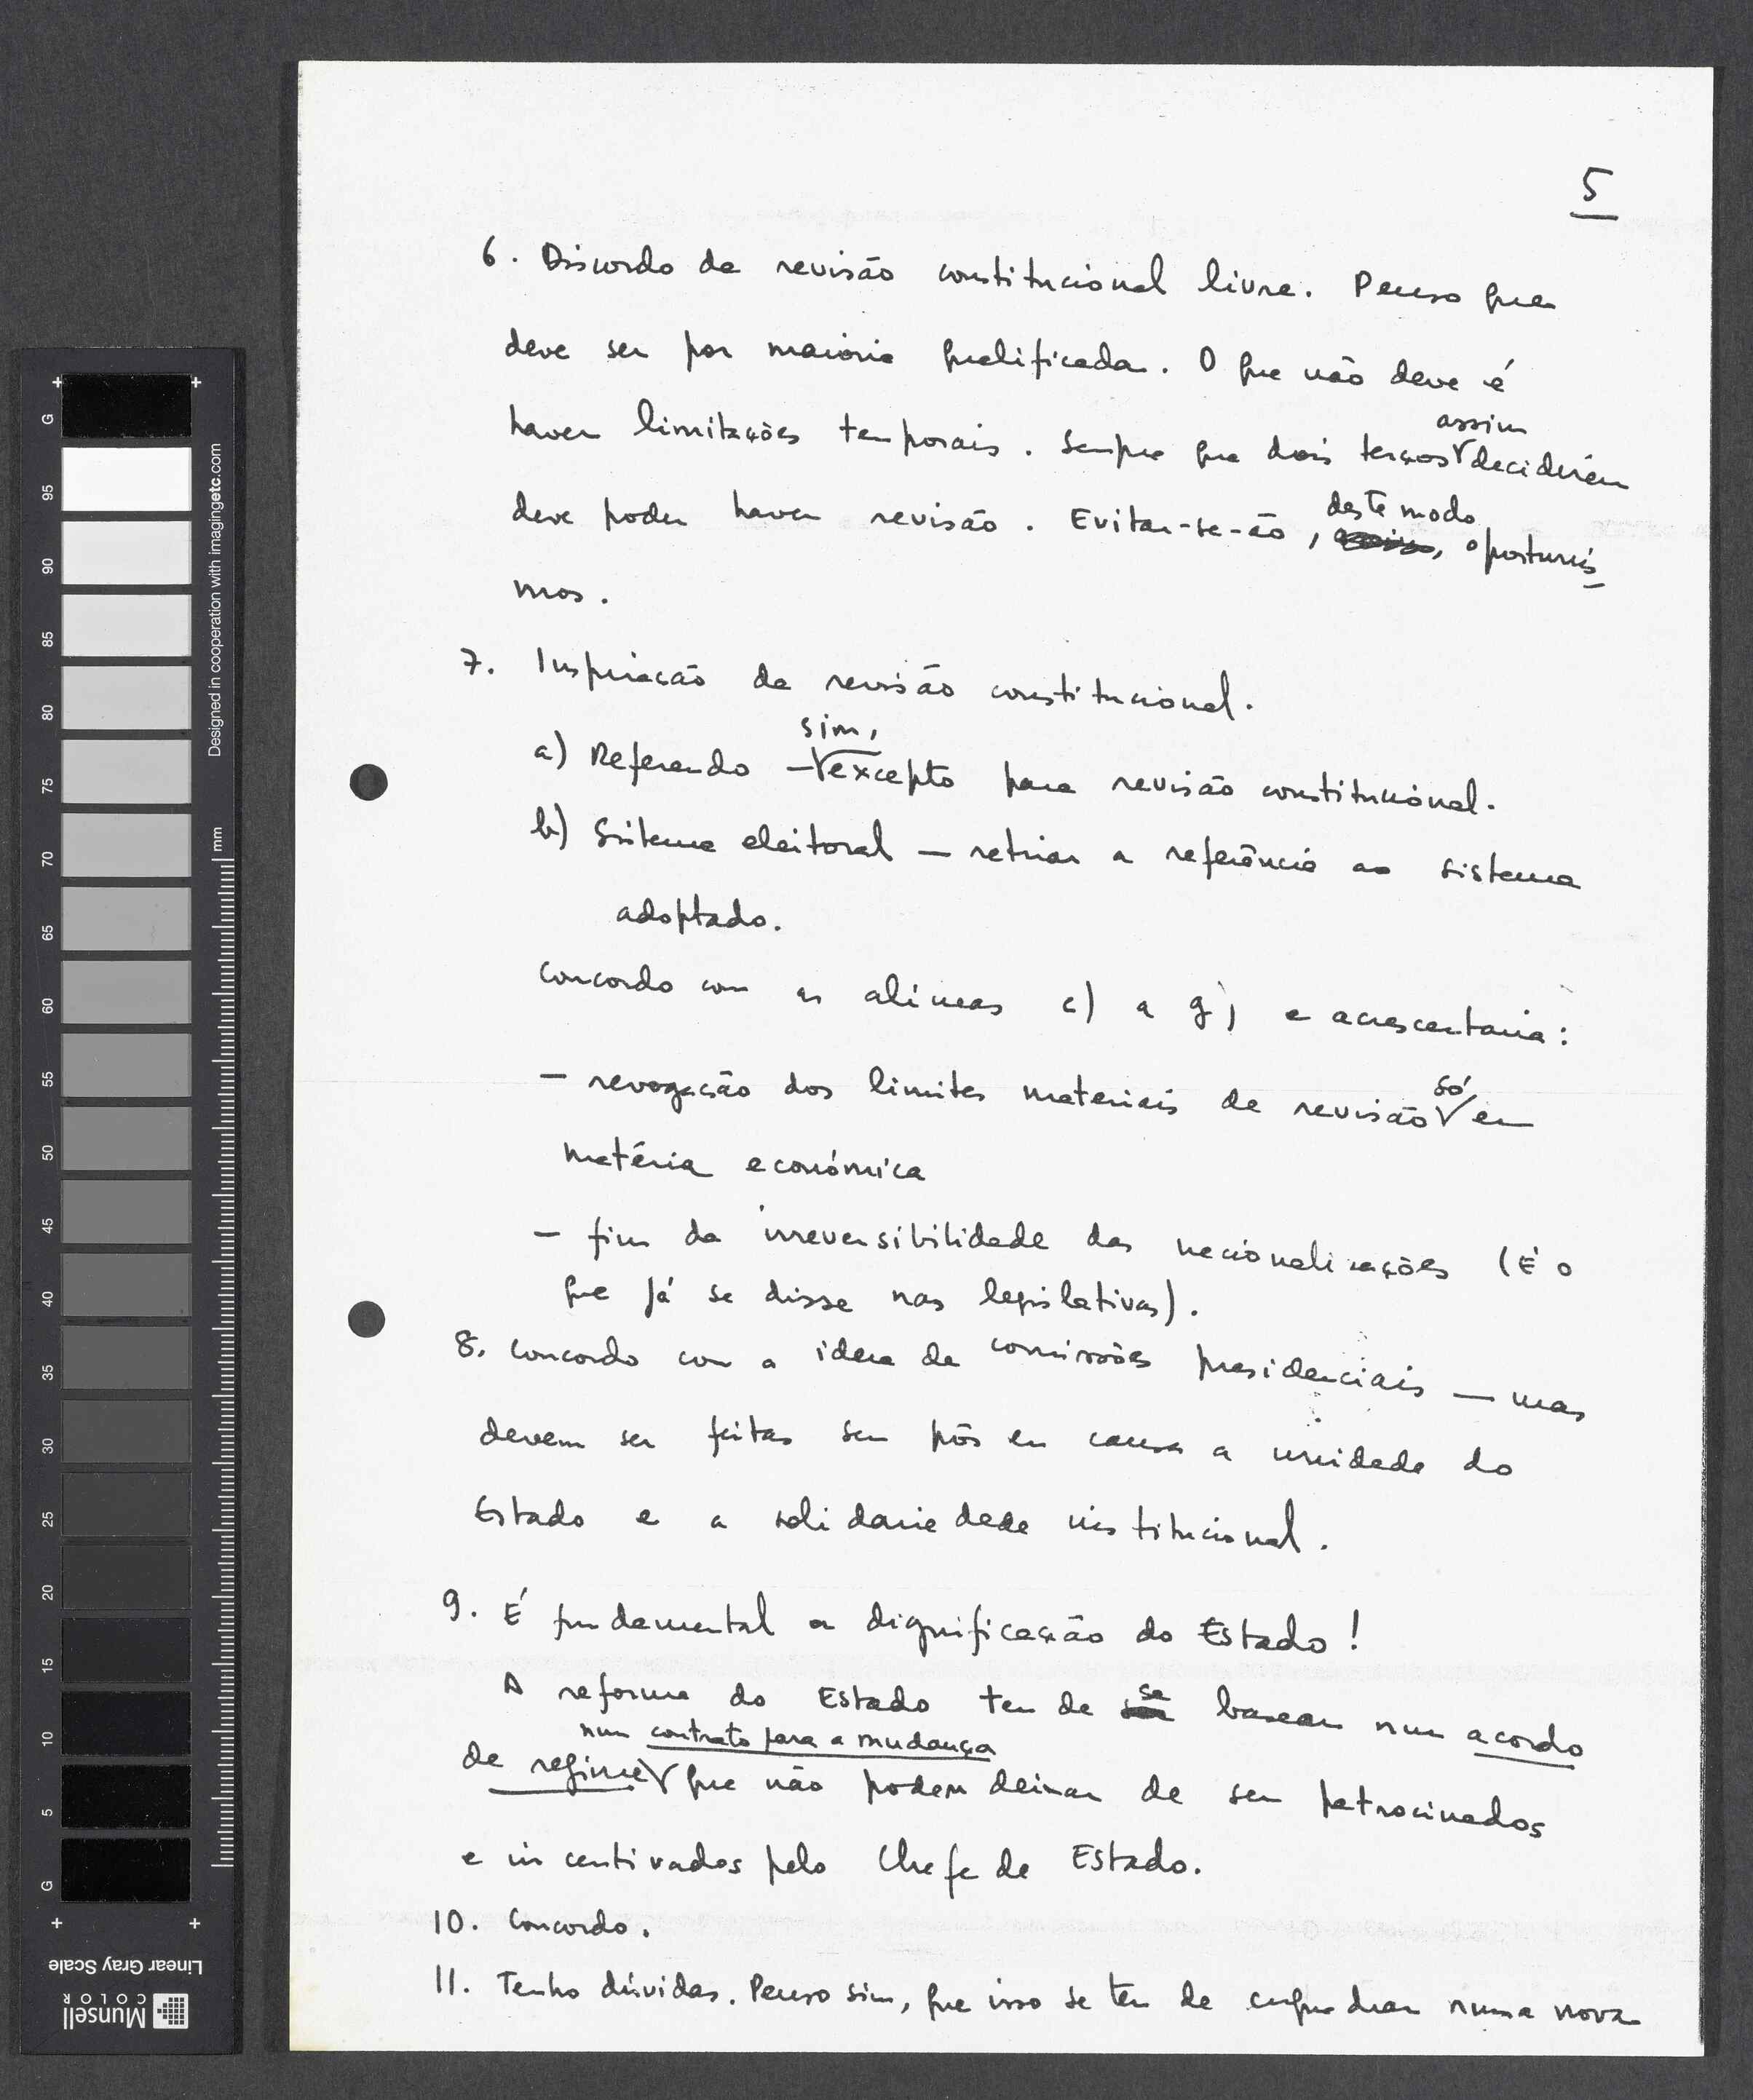 5
6. Discordo da revisão constitucional livre. Penso que
deve ser por maioria qualificada. O que não deve é
assim
haver limitações temporais. Sempre que dois terços decidirem
deste modo
deve poder haver revisão. Evitar-se-ão, assim, oportunis
mos.
7. Inspiração da revisão constitucional.
sim,
a) Referendo — excepto para revisão constitucional.
b) Sistema eleitoral — retirar a referência ao sistema
adoptado.
Concordo com as alíneas c) a g) e acrescentaria:
só
— revogação dos limites materiais de revisão em
matéria económica
— fim da irreversibilidade das nacionalizações (É o
que já se disse nas legislativas).
8. Concordo com a ideia de comissões presidenciais — mas
devem ser feitas sem pôr em causa a unidade do
Estado e a solidariedade institucional.
9. É fundamental a dignificação do Estado!
se
A reforma do Estado tem de basear num acordo
num contrato para a mudança
de regime que não podem deixar de ser patrocinados
e incentivados pelo Chefe de Estado.
10. Concordo.
11. Tenho dúvidas. Penso sim, que isso se tem de enquadrar numa nova
+ +
G
95
90
85
80
75
70
65
60
55
50
45
40
35
30
25
20
15
10
5
G
+ +
Designed in cooperation with imagingetc.com
mm
Linear Gray Scale
Munsell
COLOR